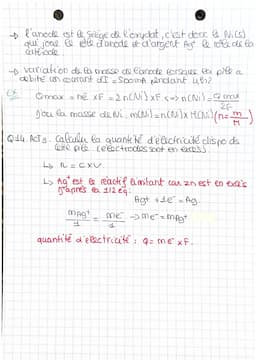 → l'anode est le siège de l'oxydat°, c'est donc le Ni(s)
qui joue le rôle d'anode et d'argent Ag⁺ le rôle de la
cathode.
→ variation de la masse de l'anode lorsque la pile a
débité un courant d'I = 500mA pendant 4,5h?
Qmax = ne⁻ x F = 2n(Ni) x F <=> n(Ni) = Qmax / 2F
d'où la masse de Ni: m(Ni) = n(Ni) x M(Ni) (n = m/M)
Q14 Act 3. Calculer la quantité d'électricité dispo de
cette pile. (electrodes sont en excès)
↳ n = C x V.
↳ Ag⁺ est le réactif limitant car Zn est en excès
d'après la 1/2 éq:
Ag+ + 1e⁻ = Ag.
nAg⁺/1 = ne⁻/1 → ne⁻ = nAg⁺
quantité d'électricité : Q = ne⁻ x F.